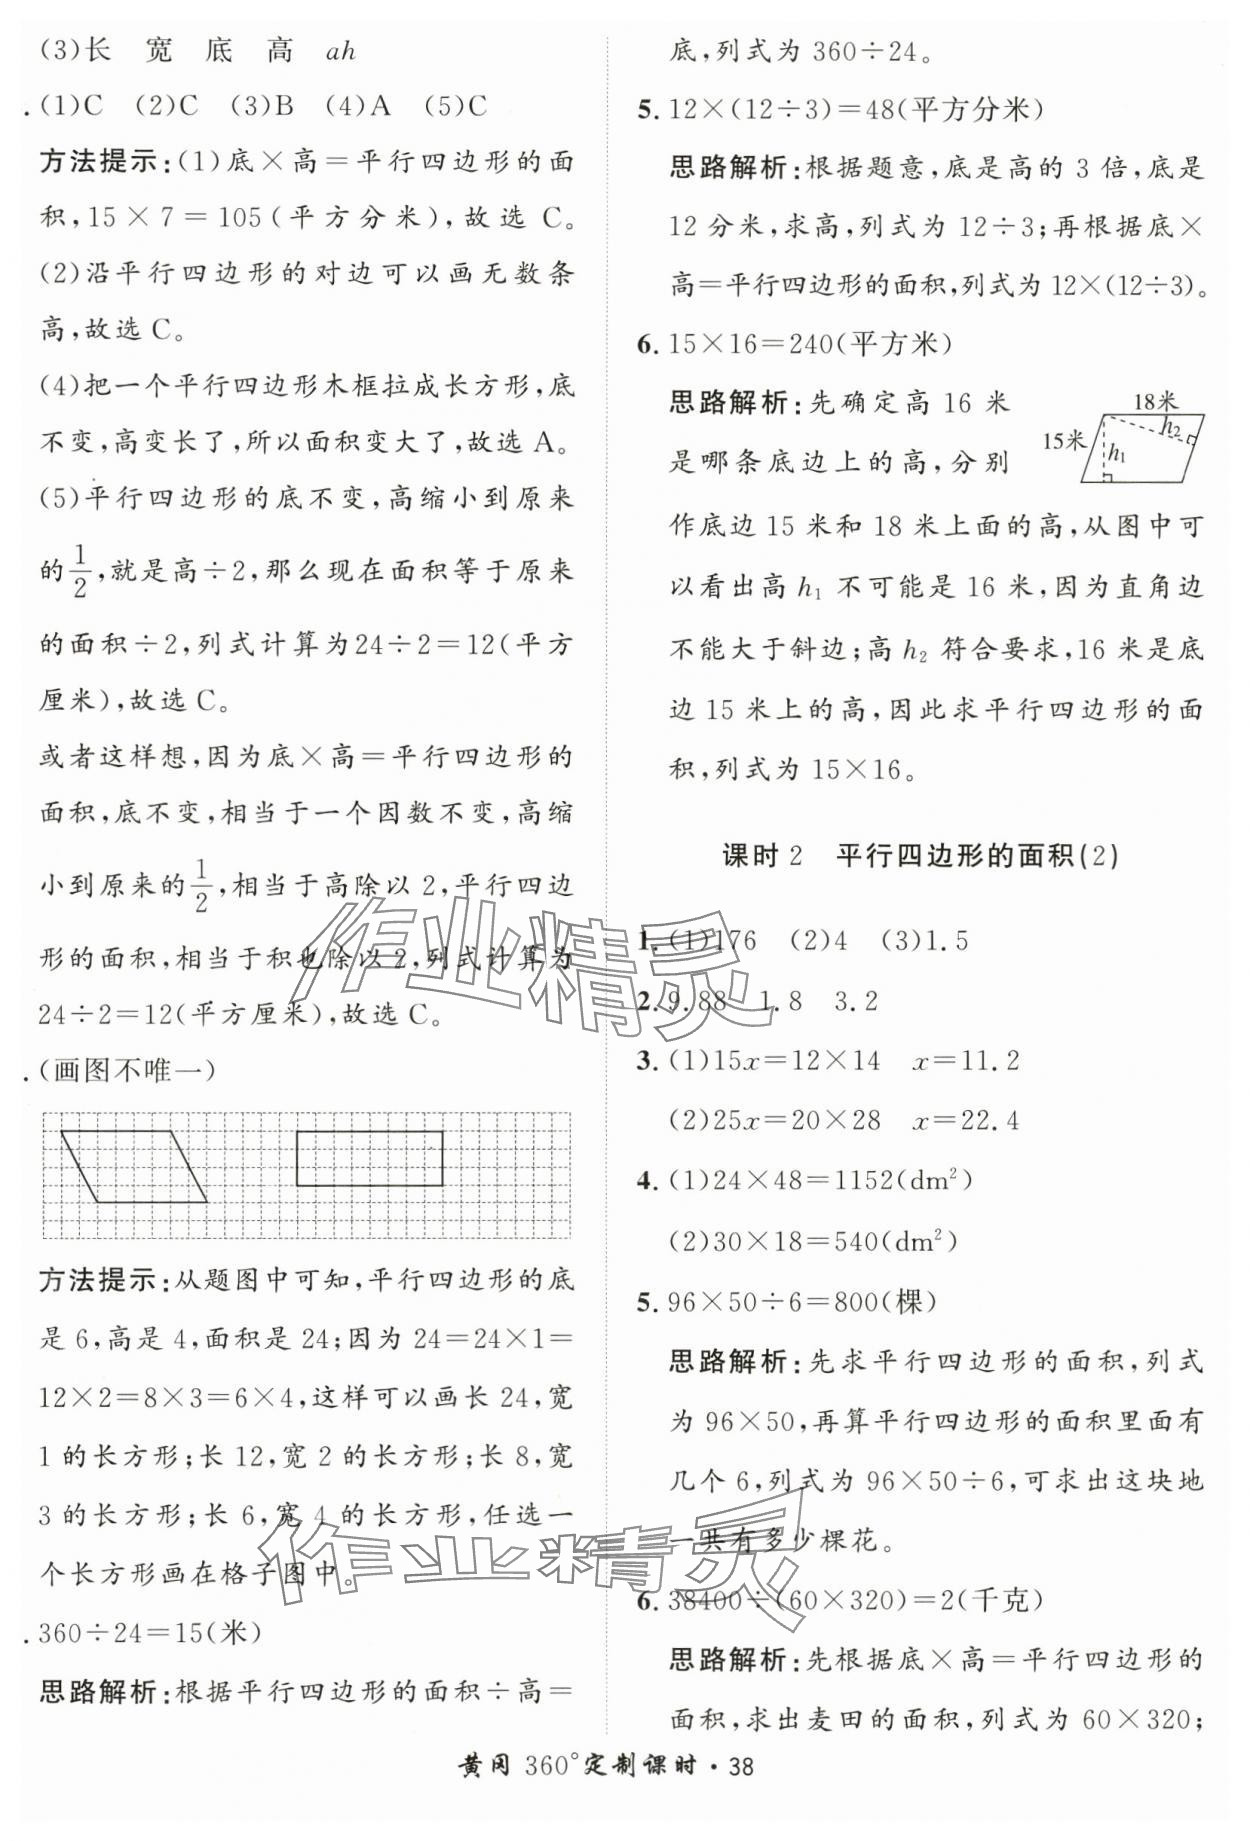 (3)长 宽 底 高 ah
.(1)C (2)C (3)B (4)A (5)C
方法提示:(1)底×高=平行四边形的面
积,15×7=105(平方分米),故选 C。
(2)沿平行四边形的对边可以画无数条
高,故选C。
(4)把一个平行四边形木框拉成长方形,底
不变,高变长了,所以面积变大了,故选A。
(5)平行四边形的底不变,高缩小到原来
的1/2,就是高÷2,那么现在面积等于原来
的面积÷2,列式计算为24÷2=12(平方
厘米),故选C。
或者这样想,因为底×高=平行四边形的
面积,底不变,相当于一个因数不变,高缩
小到原来的1/2,相当于高除以2,平行四边
形的面积,相当于积也除以2,列式计算为
24÷2=12(平方厘米),故选C。
.(画图不唯一)
方法提示:从题图中可知,平行四边形的底
是6,高是4,面积是24;因为24=24×1=
12×2=8×3=6×4,这样可以画长24,宽
1的长方形;长12,宽2的长方形;长8,宽
3的长方形;长6,宽4的长方形,任选一
个长方形画在格子图中。
.360÷24=15(米)
思路解析:根据平行四边形的面积÷高=
底,列式为360÷24。
5.12×(12÷3)=48(平方分米)
思路解析:根据题意,底是高的3倍,底是
12分米,求高,列式为12÷3;再根据底×
高=平行四边形的面积,列式为12×(12÷3)。
6.15×16=240(平方米)
思路解析:先确定高16米
是哪条底边上的高,分别
18米
15米
h₁
h₂
作底边15米和18米上面的高,从图中可
以看出高h₁不可能是16米,因为直角边
不能大于斜边;高h₂符合要求,16米是底
边15米上的高,因此求平行四边形的面
积,列式为15×16。
课时2 平行四边形的面积(2)
1.(1)176 (2)4 (3)1.5
2.9.88 1.8 3.2
3.(1)15x=12×14 x=11.2
(2)25x=20×28 x=22.4
4.(1)24×48=1152(dm²)
(2)30×18=540(dm²)
5.96×50÷6=800(棵)
思路解析:先求平行四边形的面积,列式
为96×50,再算平行四边形的面积里面有
几个6,列式为96×50÷6,可求出这块地
一共有多少棵花。
6.38400÷(60×320)=2(千克)
思路解析:先根据底×高=平行四边形的
面积,求出麦田的面积,列式为60×320;
黄冈 360°定制课时·38
作业精灵
作业精灵